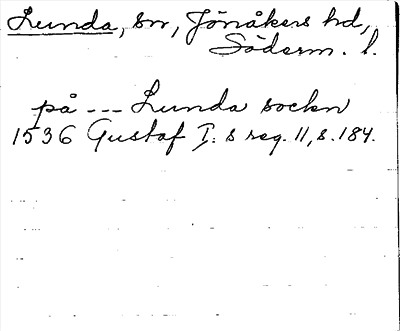 Lunda, sn, Jönåkers hd,
Söderm. l.
på --- Lunda sockn
1536 Gustaf I:s reg. 11, s. 184.